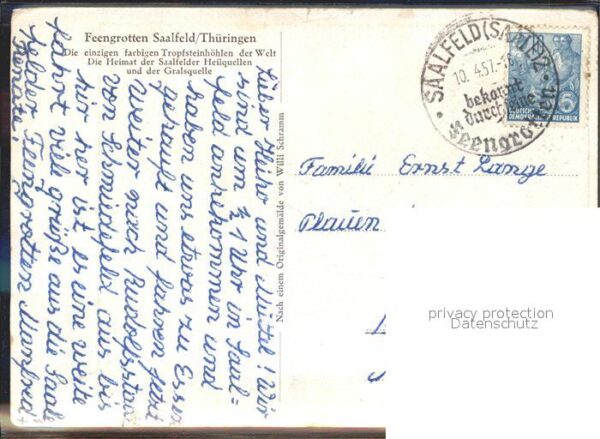 Feengrotten Saalfeld/Thüringen
Die einzigen farbigen Tropfsteinhöhlen der Welt
Die Heimat der Saalfelder Heilquellen
und der Gralsquelle
Lieber Heiko und Mutti! Wir
sind um ½ 1 Uhr in Saal=
feld angekommen und
haben uns etwas zu Essen
gekauft und fahren jetzt
weiter nach Rudolfsstadt
von Schmiedefeld aus bis
hier her ist es eine weite
Fahrt viel grüße aus die Saal
felder Feengrotten Manfred
Renate!
Nach einem Originalgemälde von Willi Schramm
SAALFELD (SAALE) 2
10.4.57
bekannt
durch
Feengrotten
DEUTSCHE
DEMOKRATISCHE REPUBLIK
5
Familie Ernst Lange
Plauen
privacy protection
Datenschutz